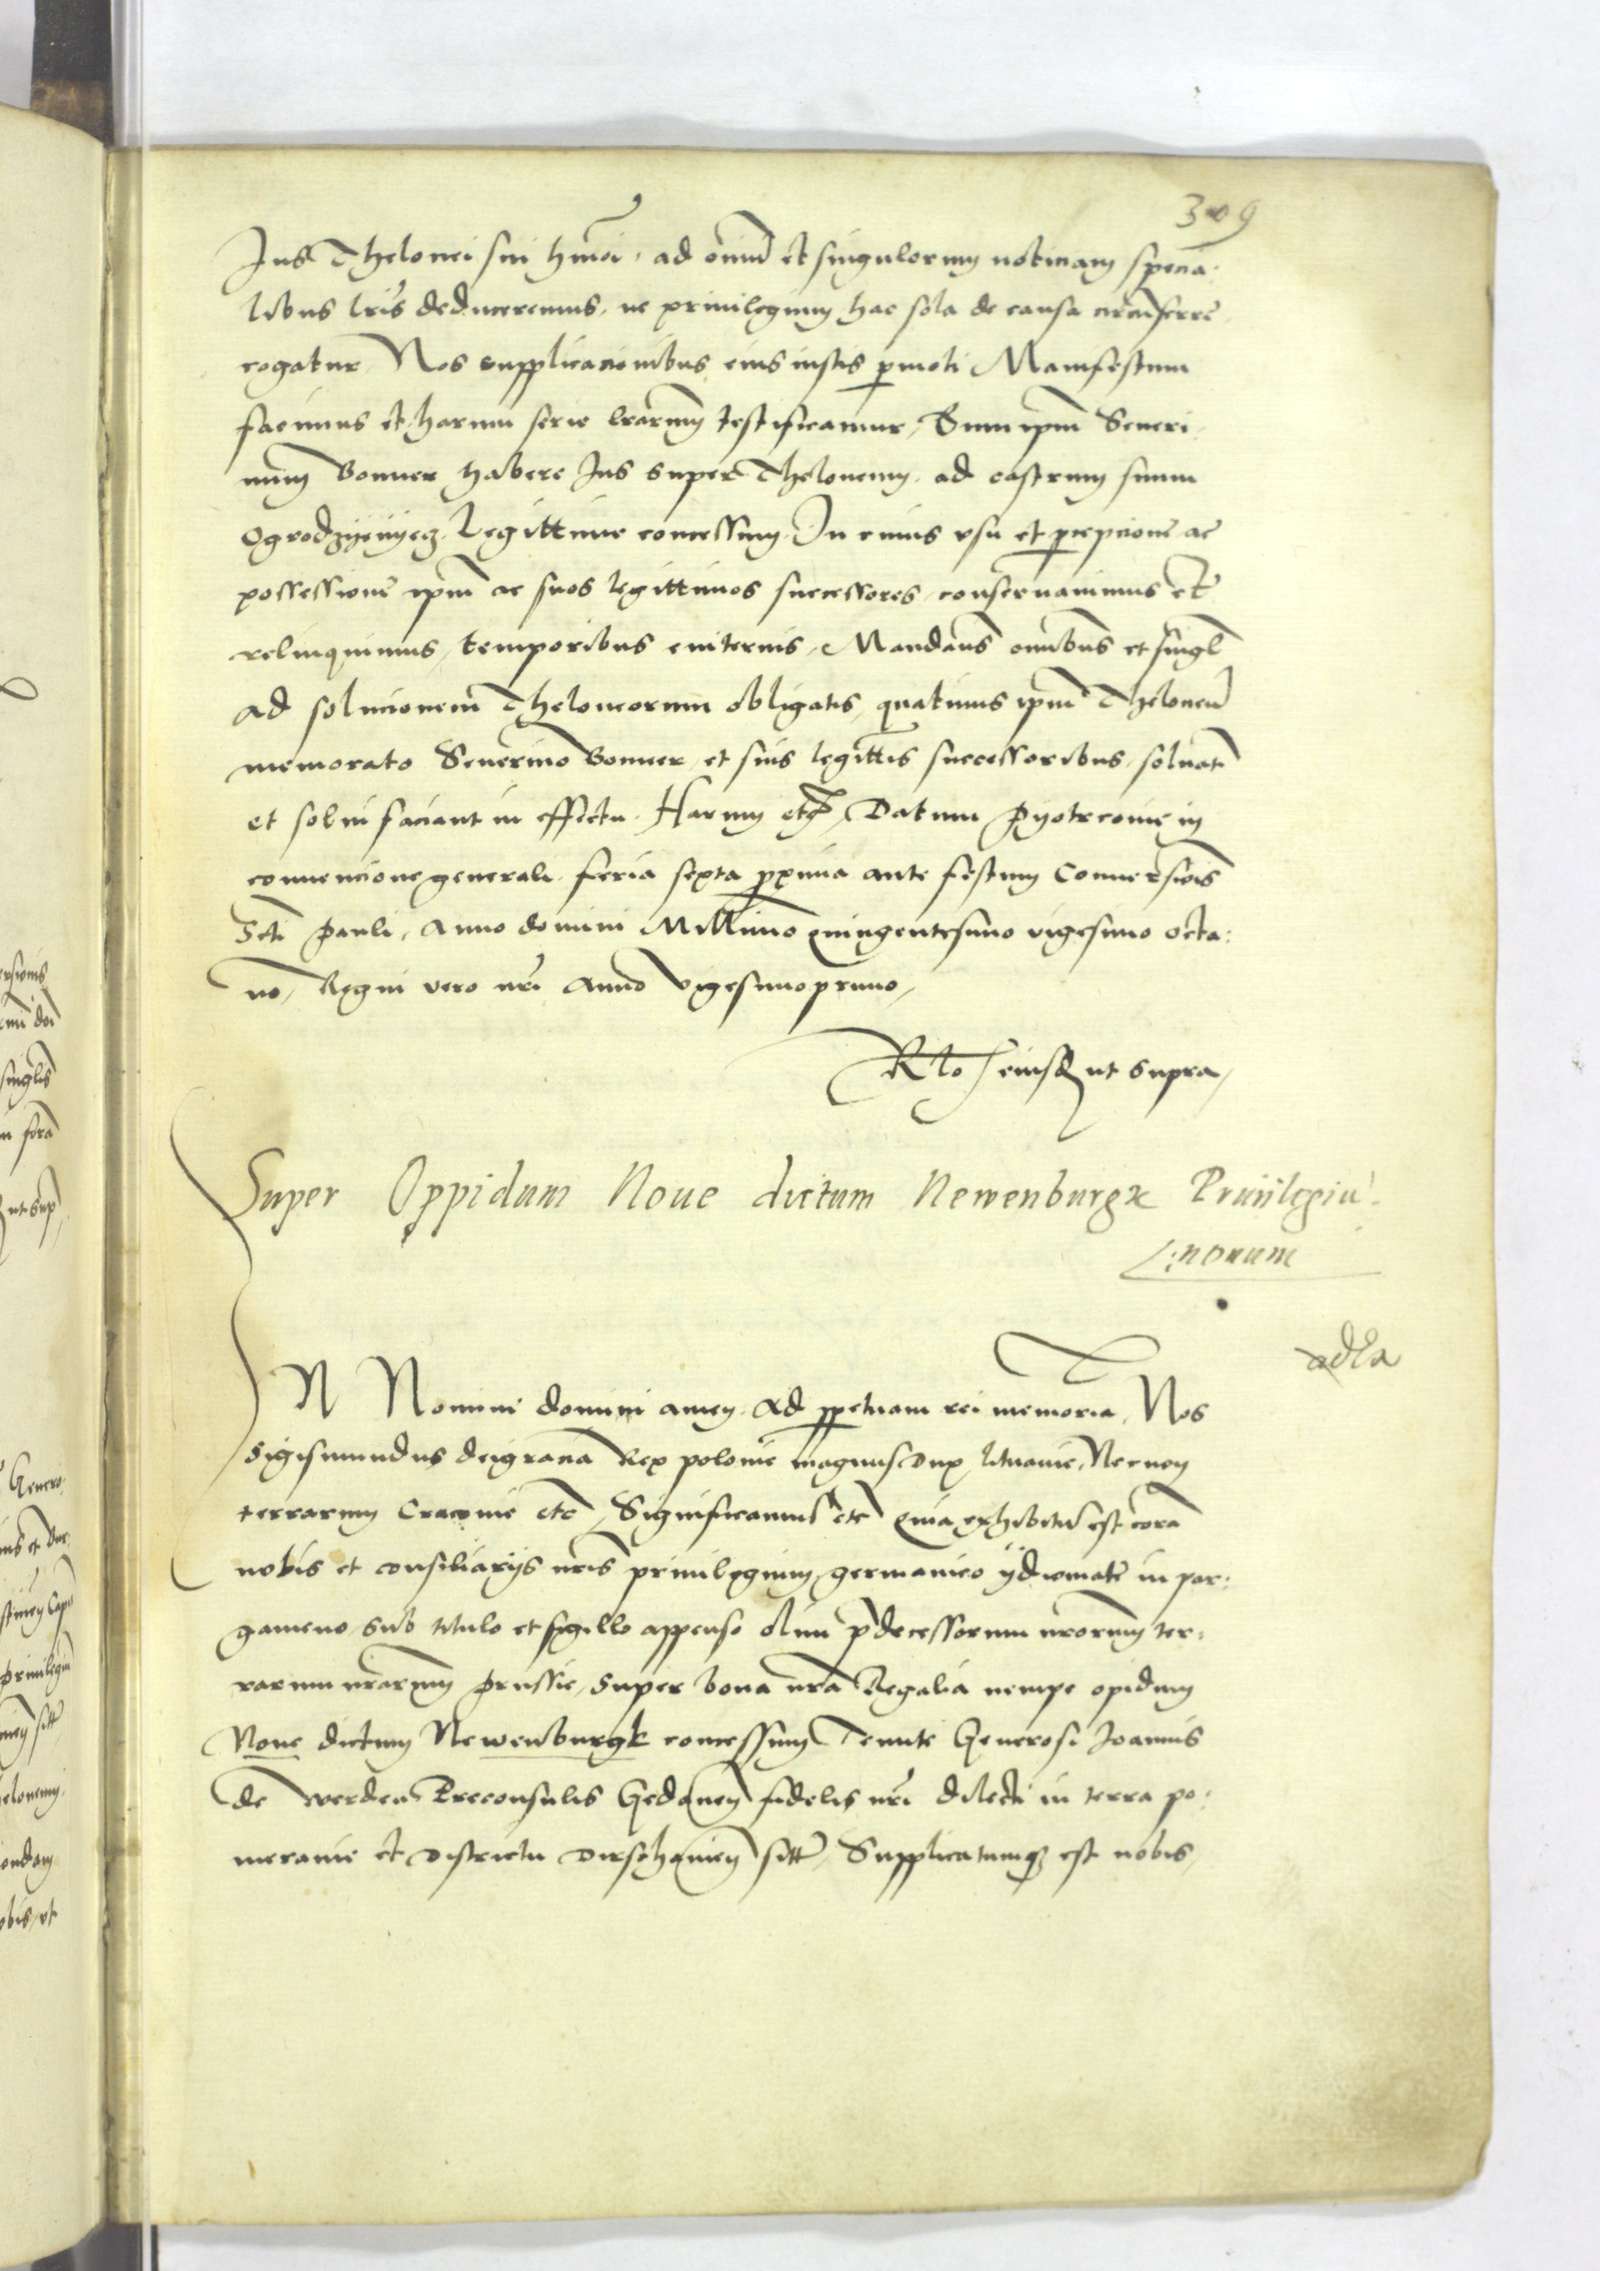 309
Jus Thelonei sui hmoi, ad oim et singulorum noticiam specia:
libus lris deduceremus, ne privilegium hac sola de causa circuferre
cogatur, Nos supplicacionibus eius iustis pmoti Manifestum
facimus et harum serie lrarum testificamur, Eum ipm Seueri
num Bonner habere Jus super Theloneum ad castrum suum
Ogrodzyenyecz Legittime concessum, In cuius vsu et pcepcione ac
possessione ipm ac suos legittimos successores conseruauimus et
relinquimus, temporibus euiternis, Mandans omibus et singl
ad solucionem Theloneorum obligatis, quatinus ipm Theloneu
memorato Seuerino Bonner et suis legittis successoribus soluat
et solui faciant in effectu. Harum etc, Datum Pyotrcouie in
conuencione generali feria sexta pxima ante festum Conuersiois
Scti Pauli, Anno domini Millimo quingentesimo vigesimo octa:
uo, Regni vero nri Anno vigesimoprimo,
Rlo eiusd ut supra,
Super Oppidum Noue dictum Newenburgk Priuilegiu
nouum
adla
N Nomine domini amen. Ad ppetuam rei memoria, Nos
Sigismundus deigracia Rex polonie magnus dux lituanie, Necnon
terrarum Cracouie etc, Significamus etc Quia exhibitu est cora
nobis et consiliarijs nris priuilegium, germanico ydiomate in par:
gameno, sub titulo et sigillo appenso olim pdecessorum nrorum ter:
rarum nrarum Prussie, super bona nra Regalia nempe opidum
Noue dictum Newenburgk concessum Tenute Generosi Joannis
de Werden Preconsulis Gedanen fidelis nri dilecti in terra po:
meranie et districtu Dirschauien sitt, Supplicatumq est nobis,